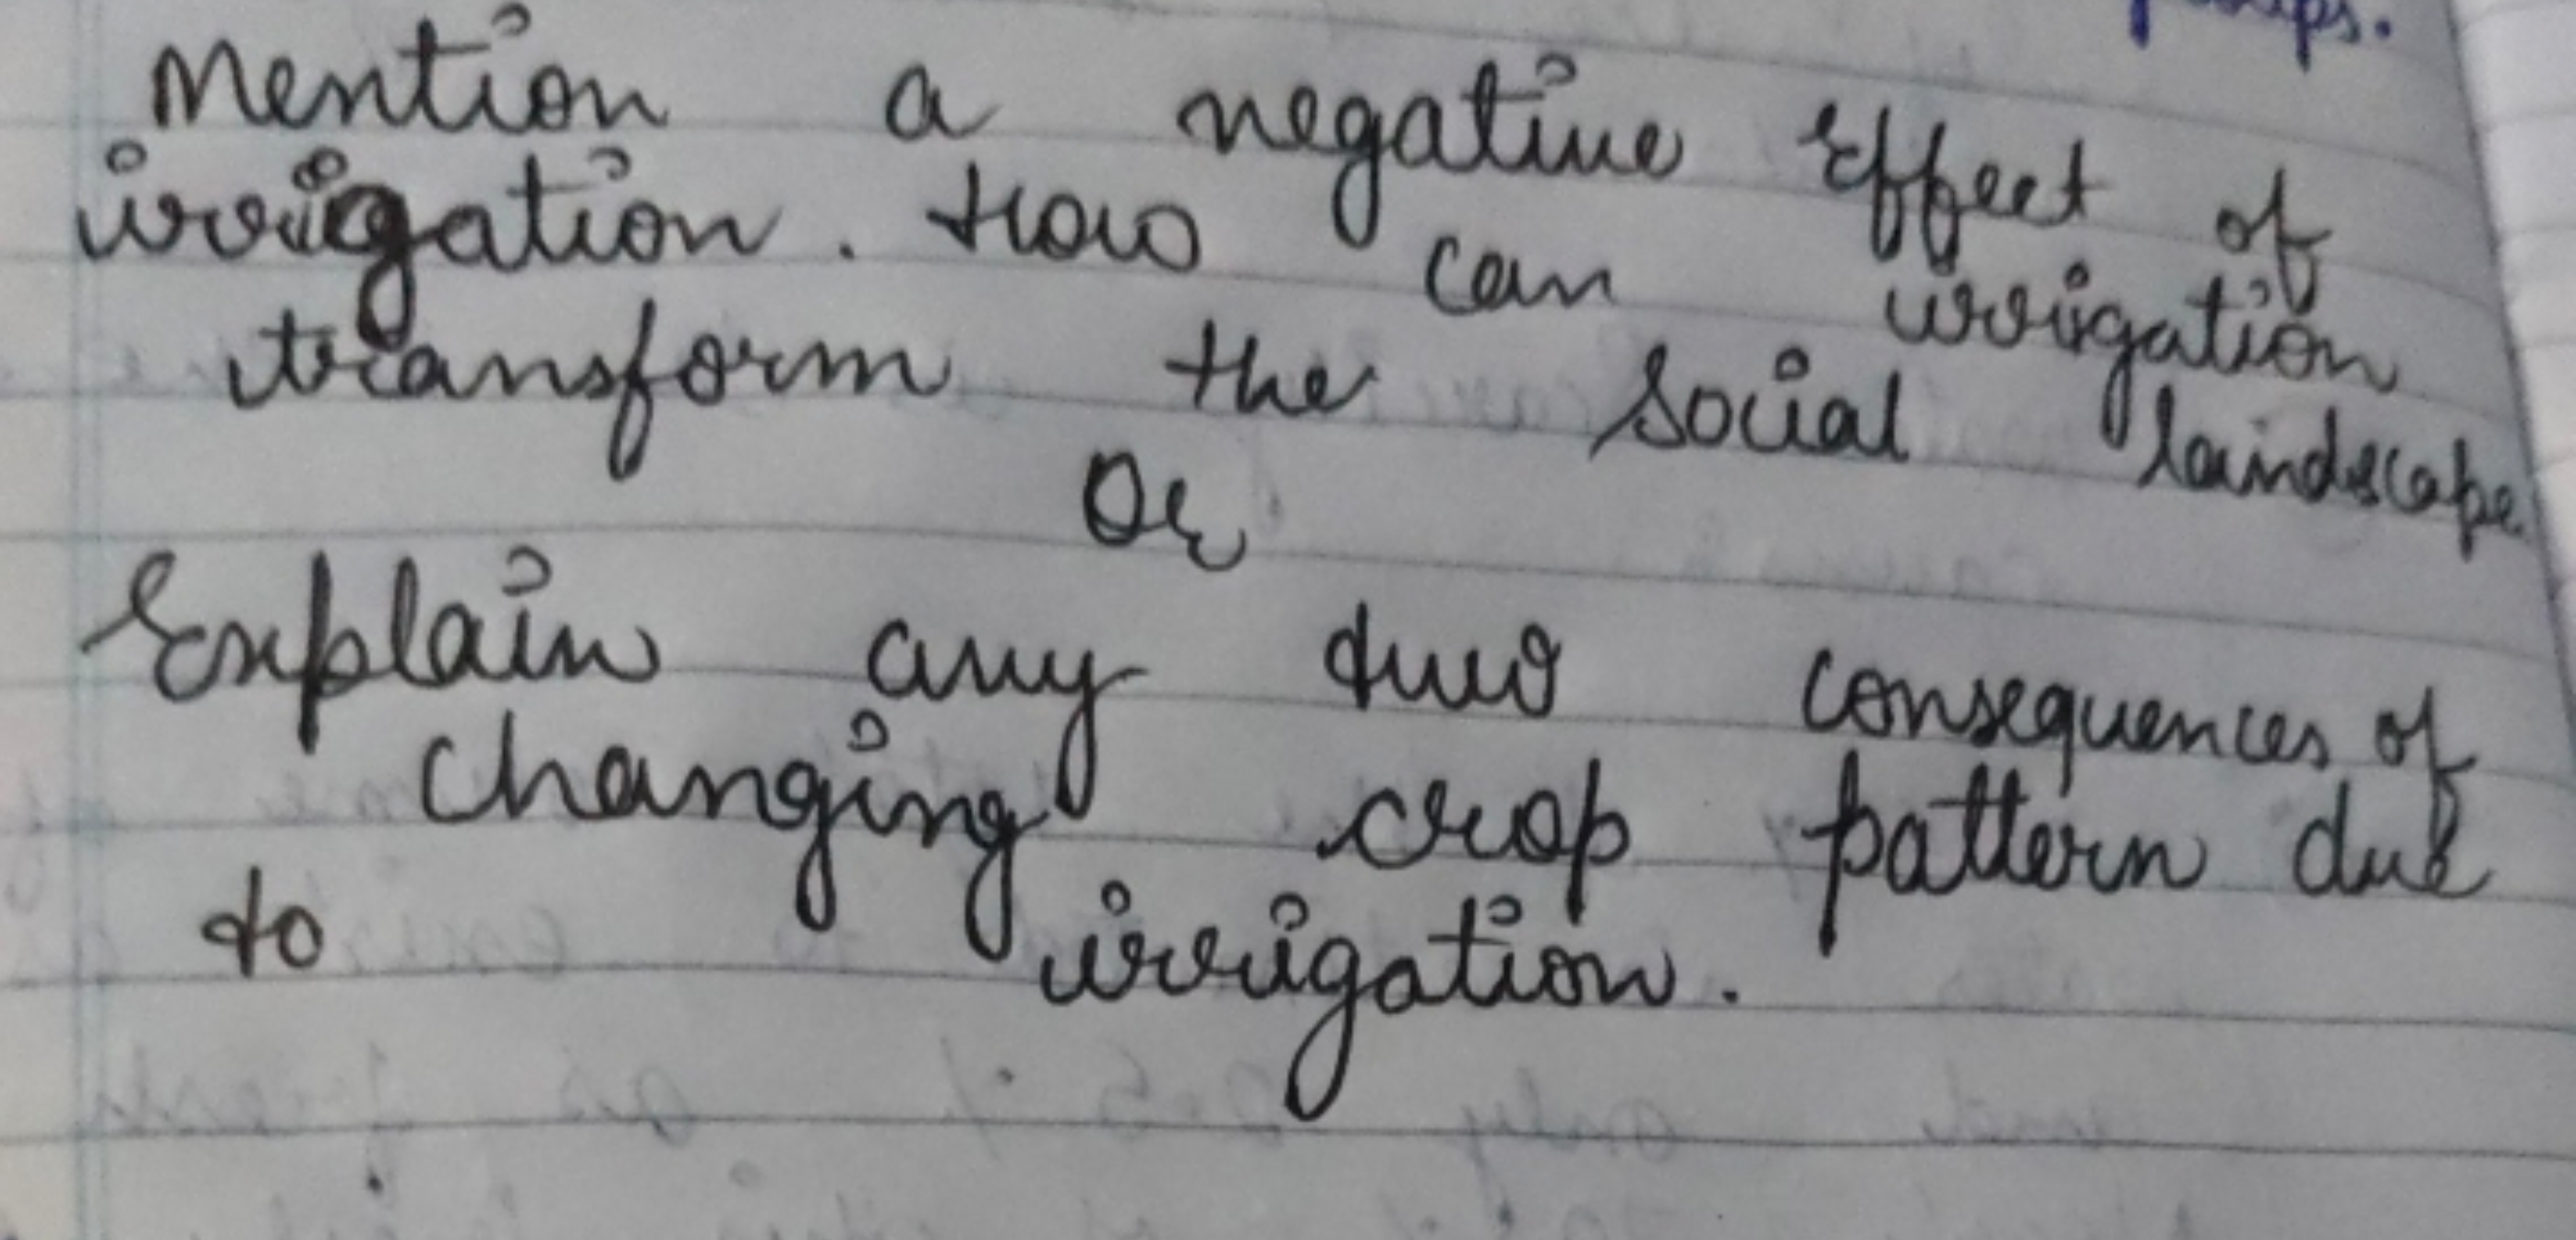 Mention a negative Effect of
irrigation. How can irrigation
transform the social landscape
Or
Explain any two consequences of
changing crop pattern due
to irrigation.